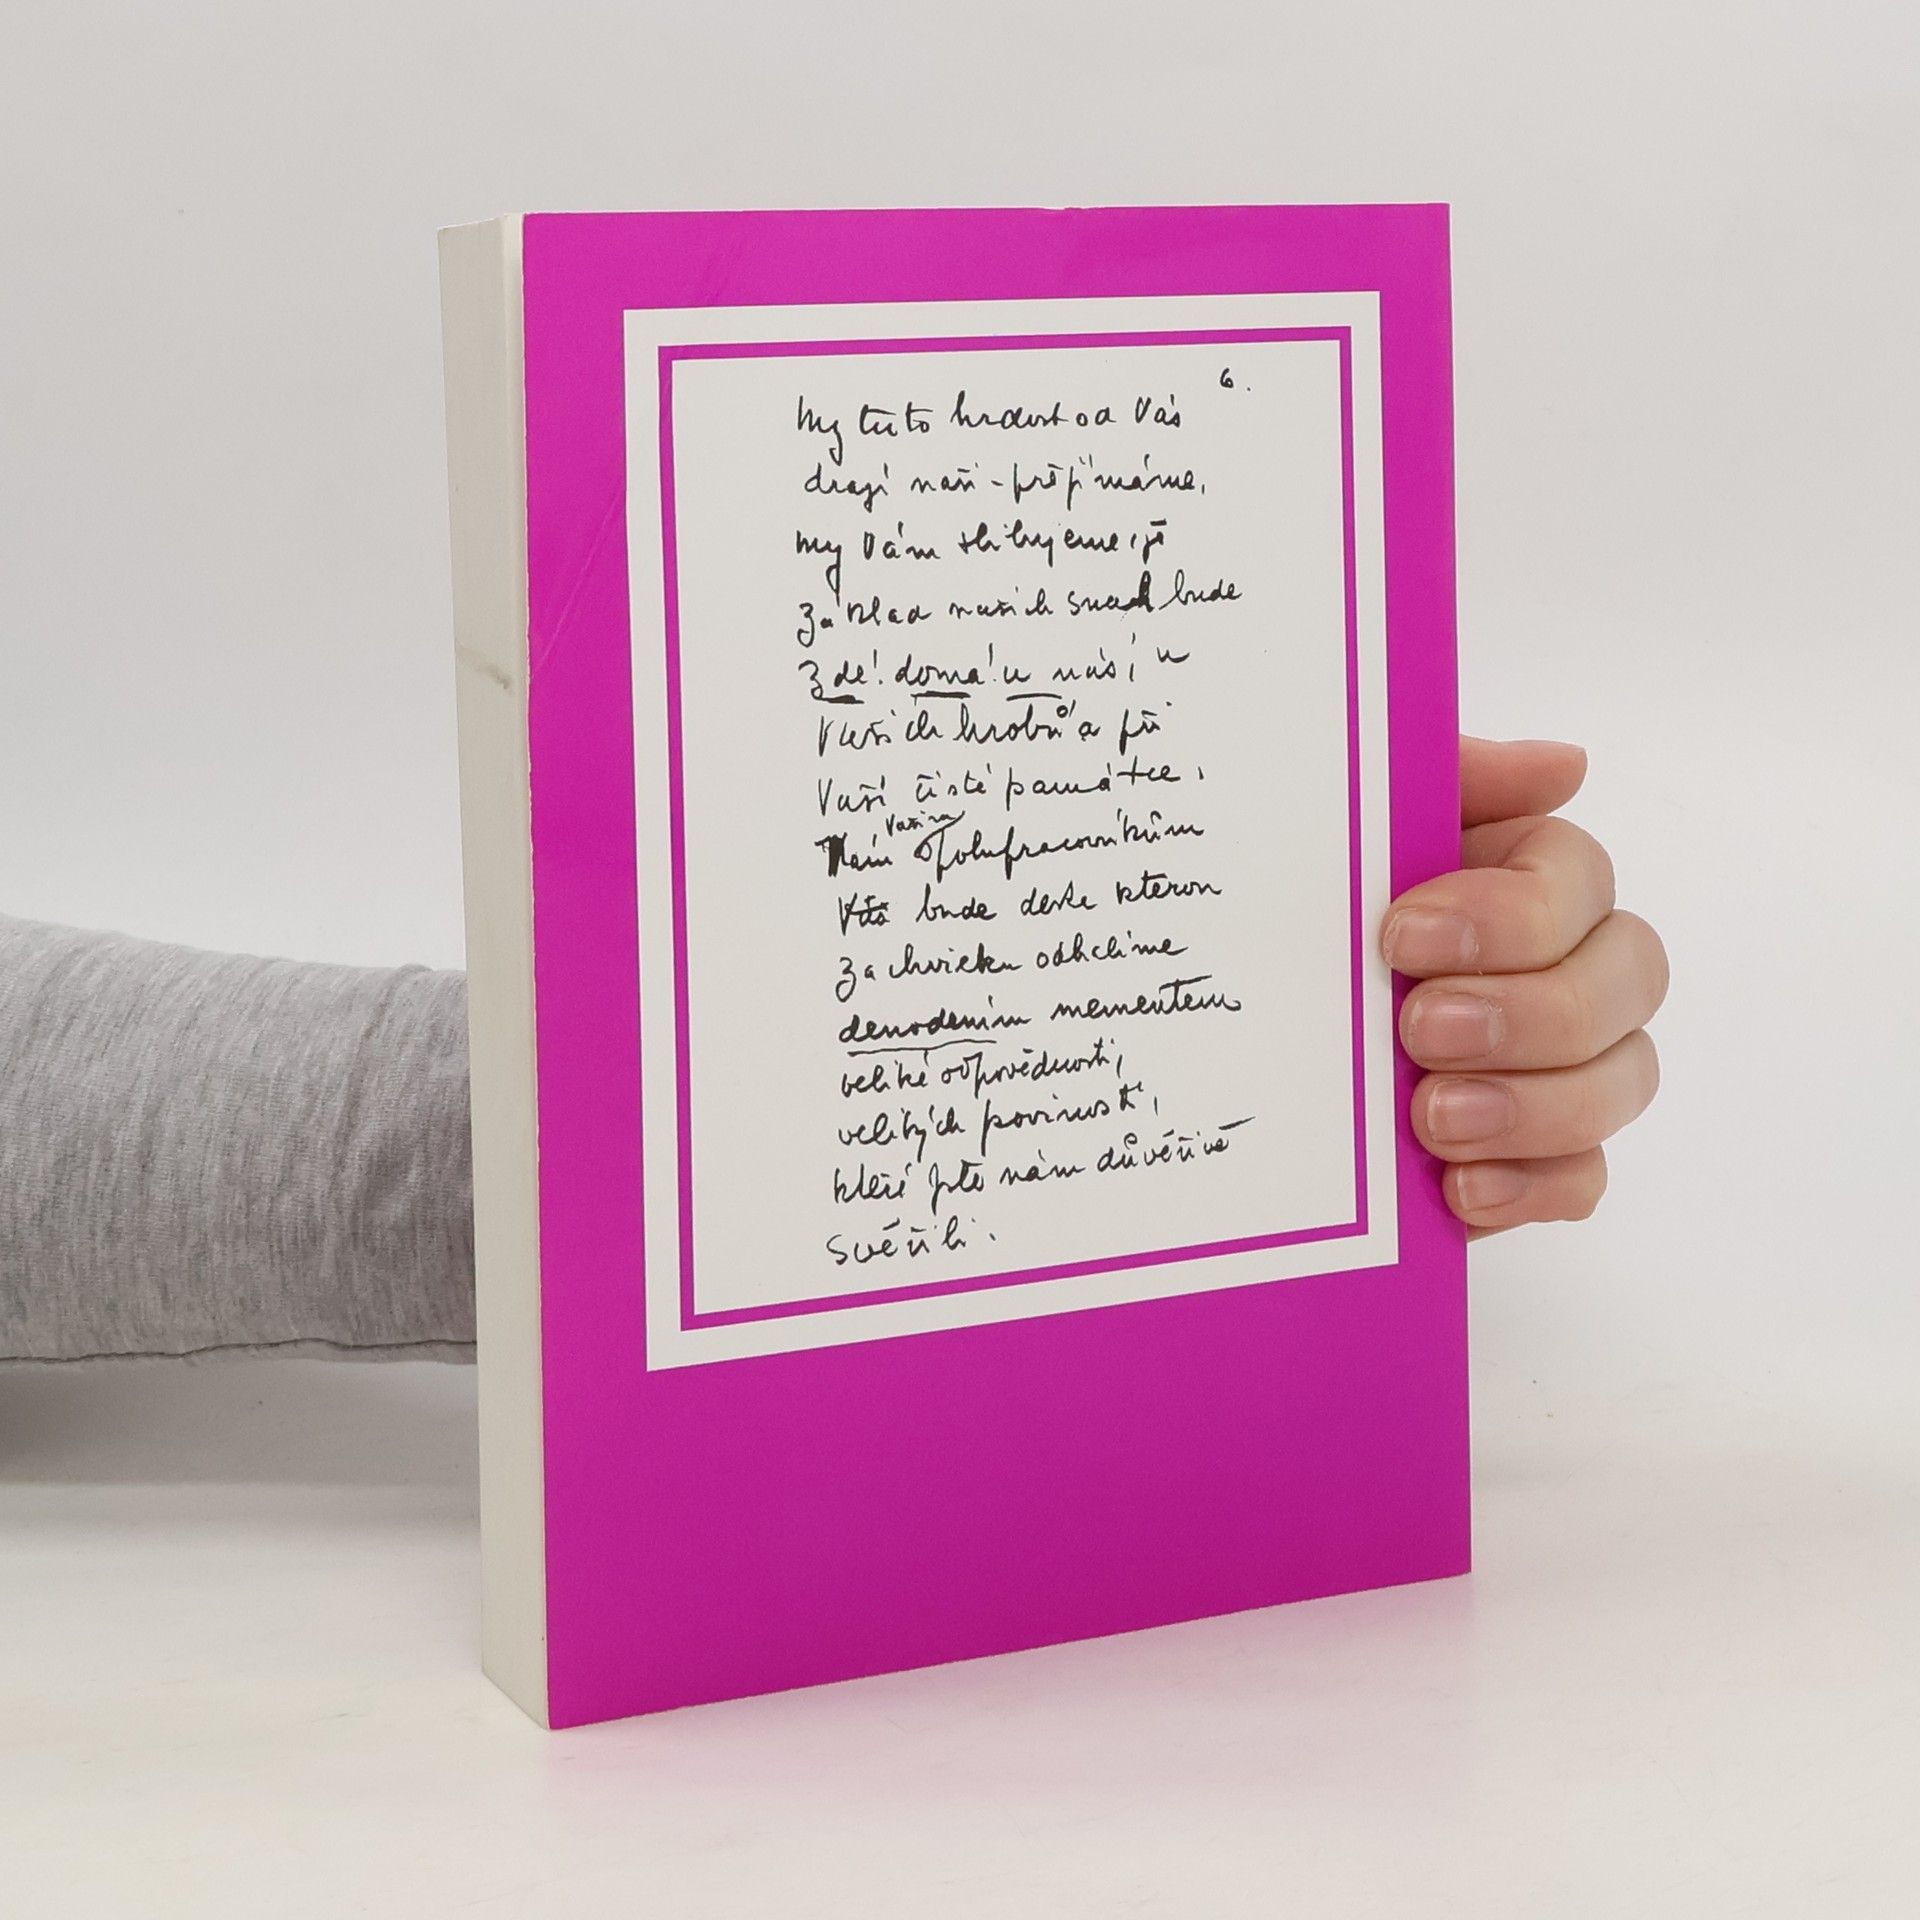 6.
My tuto hrdost od Vás
drazí naši - přejímáme,
my Vám slibujeme, že
Základ našich snah bude
Zde! doma! u nás, u
Vašich hrobů a při
Vaší čisté památce.
Vašim
Nám spolupracovníkům
Vás bude deska kterou
Za chvilku odhalíme
denodením mementem
veliké odpovědnosti,
velikých povinností,
které jste nám důvěřivě
Svěřili.